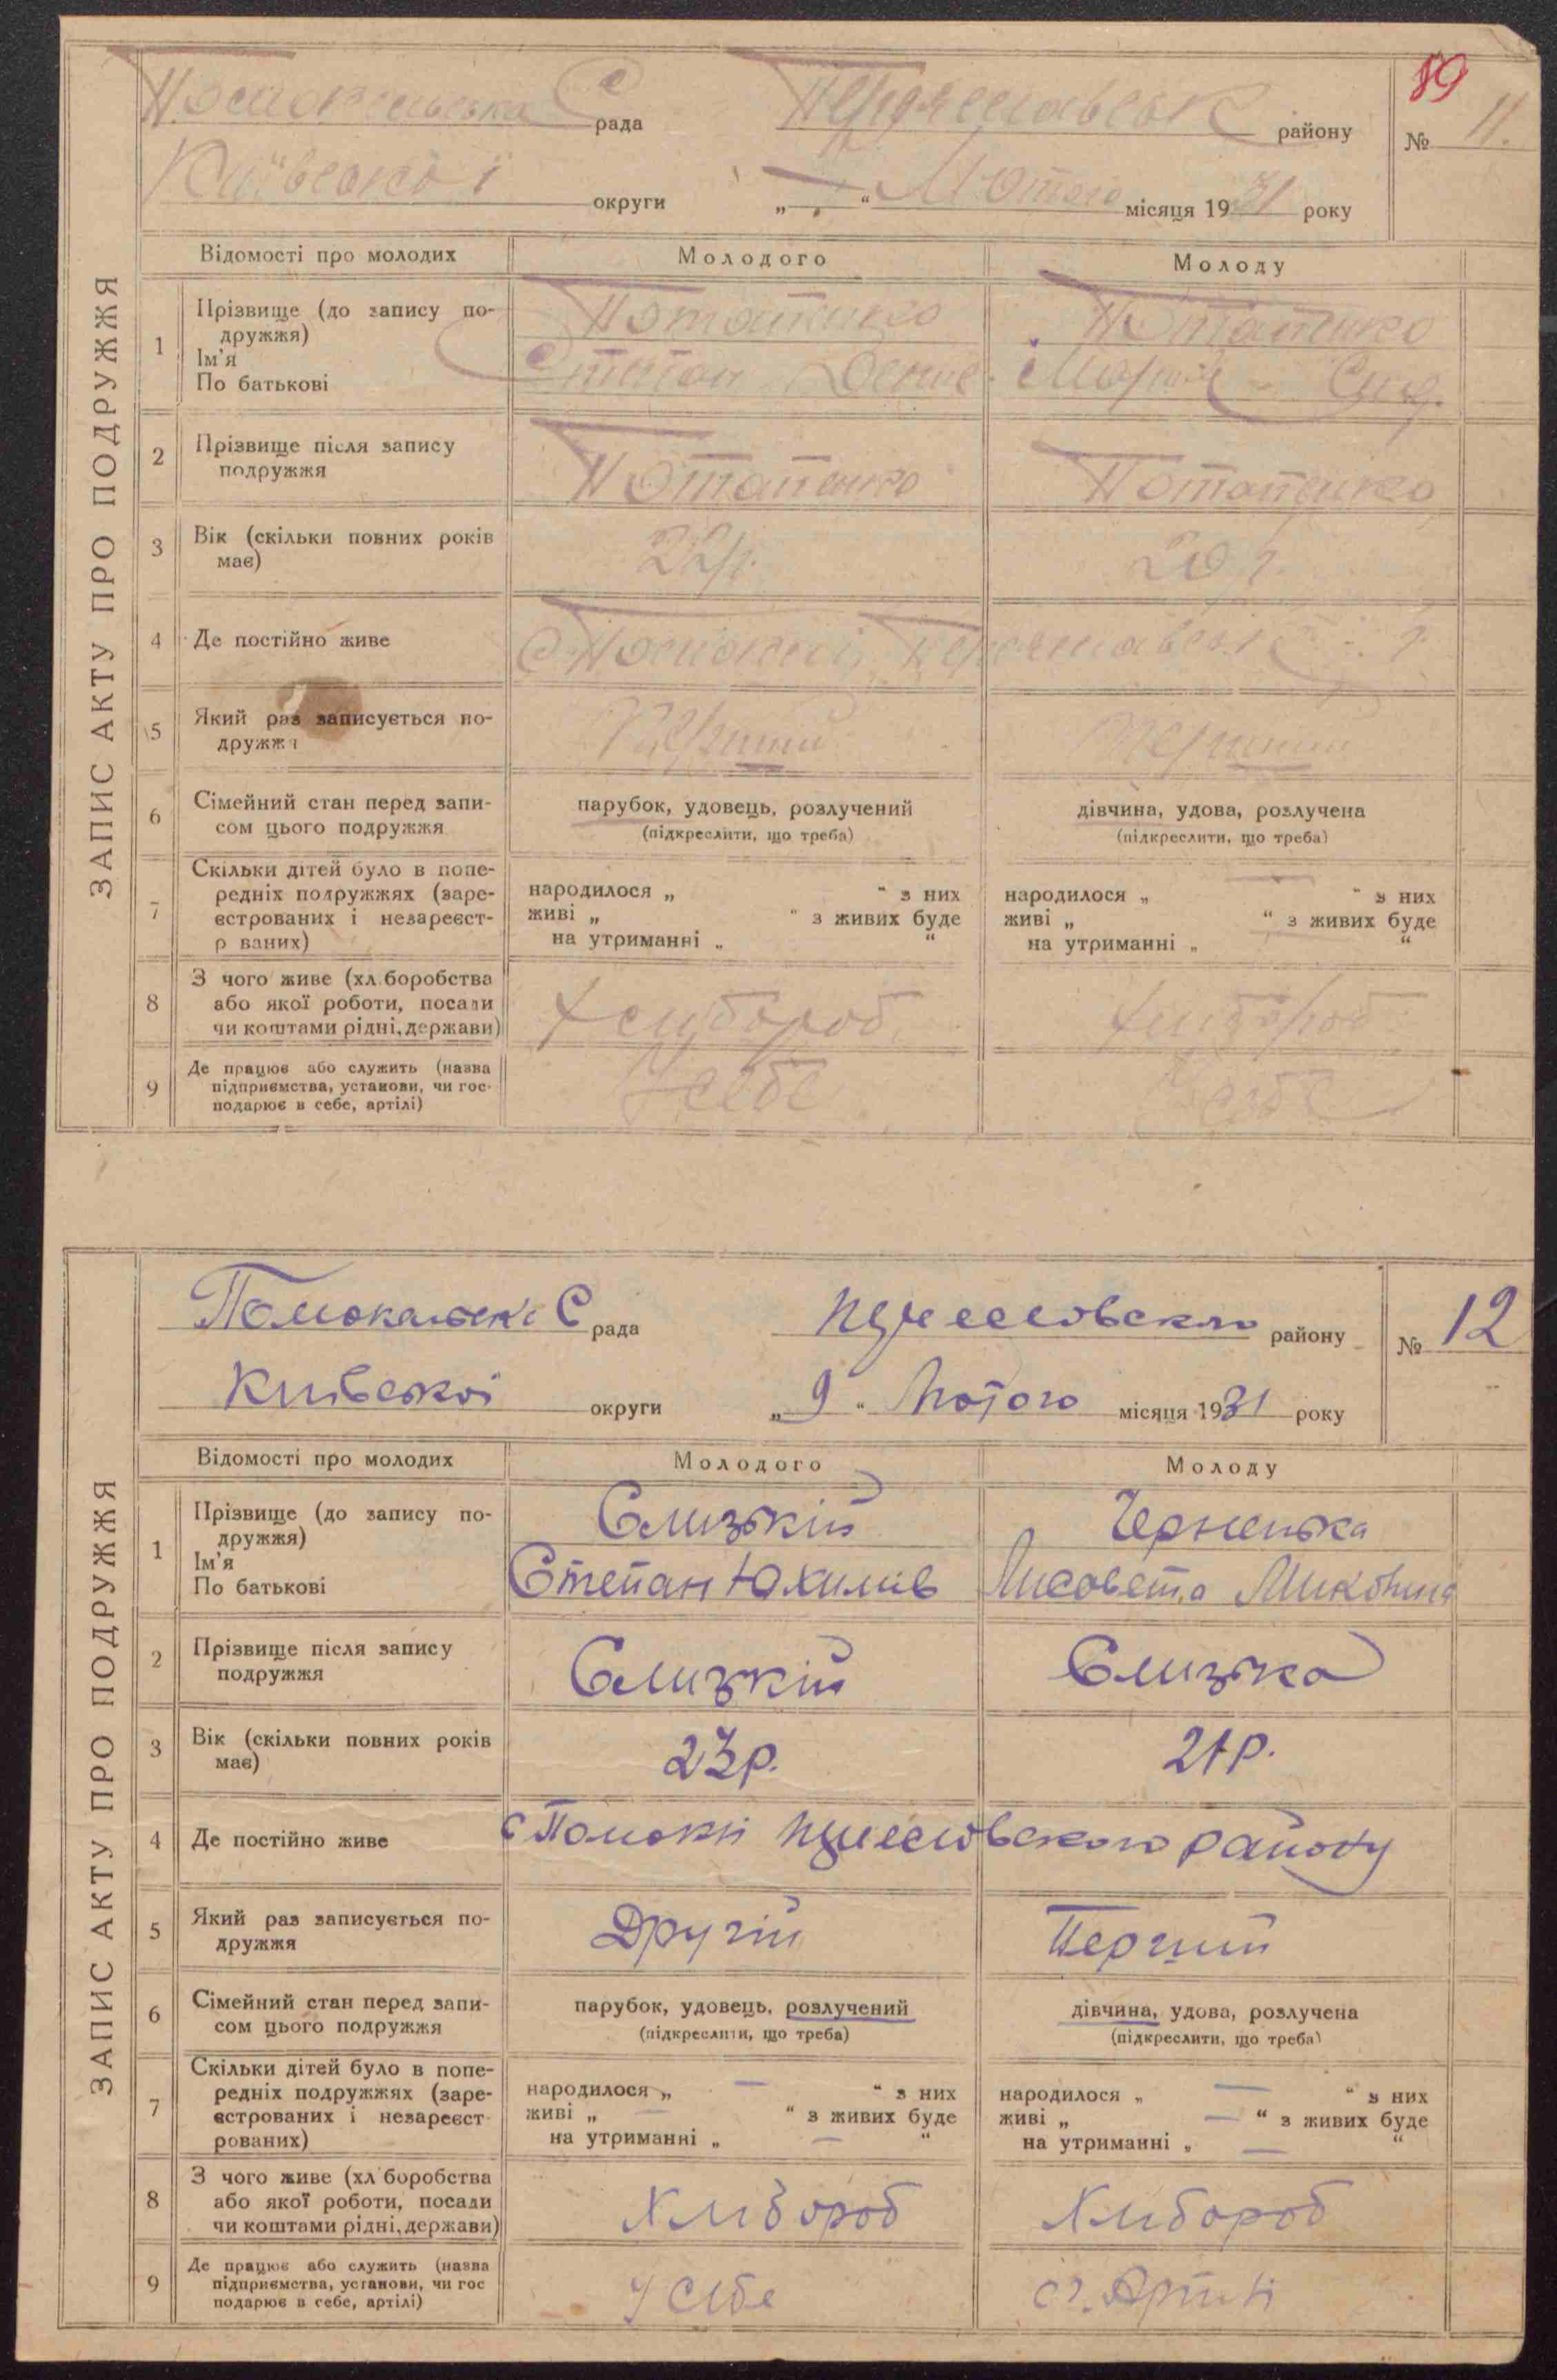 89
Помокельська С рада Переяславськ району № 11.
Київської округи „ “ Лютого місяця 1931 року
ЗАПИС АКТУ ПРО ПОДРУЖЖЯ
Відомості про молодих Молодого Молоду
1 Прізвище (до запису по-дружжя) Потапенко Потапенко
Ім'я
По батькові Степан Марія
2 Прізвище після запису
подружжя Потапенко Потапенко
3 Вік (скільки повних років
має) 22р. 20р.
4 Де постійно живе
5 Який раз записується по-
дружжя Перший Перший
6 Сімейний стан перед запи-
сом цього подружжя
парубок, удовець, розлучений дівчина, удова, розлучена
(підкреслити, що треба) (підкреслити, що треба)
7 Скільки дітей було в попе-
редніх подружжях (заре-
єстрованих і незареєст-
р ваних)
народилося „ “ з них народилося „ “ з них
живі „ “ з живих буде живі „ “ з живих буде
на утриманні „ “ на утриманні „ “
8 З чого живе (хл боробства
або якої роботи, посади
чи коштами рідні, держави) Хлибороб Хлибороб
9 Де працює або служить (назва
підприємства, установи, чи гос-
подарює в себе, артілі) У себе У себе
С рада району № 12
Київської округи „9“ Лютого місяця 1931 року
ЗАПИС АКТУ ПРО ПОДРУЖЖЯ
Відомості про молодих Молодого Молоду
1 Прізвище (до запису по-
дружжя) Слизькій Черненька
Ім'я
По батькові Степан Юхимів Лисовета
2 Прізвище після запису
подружжя Слизкій Слизька
3 Вік (скільки повних років
має) 23р. 21р.
4 Де постійно живе с Помокли району
5 Який раз записується по-
дружжя Другій Перший
6 Сімейний стан перед запи-
сом цього подружжя
парубок, удовець, розлучений дівчина, удова, розлучена
(підкреслити, що треба) (підкреслити, що треба)
7 Скільки дітей було в попе-
редніх подружжях (заре-
єстрованих і незареєст-
рованих)
народилося „ — “ з них народилося „ — “ з них
живі „ — “ з живих буде живі „ — “ з живих буде
на утриманні „ — “ на утриманні „ — “
8 З чого живе (хл боробства
або якої роботи, посади
чи коштами рідні, держави) Хлибороб Хлибороб
9 Де працює або служить (назва
підприємства, установи, чи гос
подарює в себе, артілі) У себе